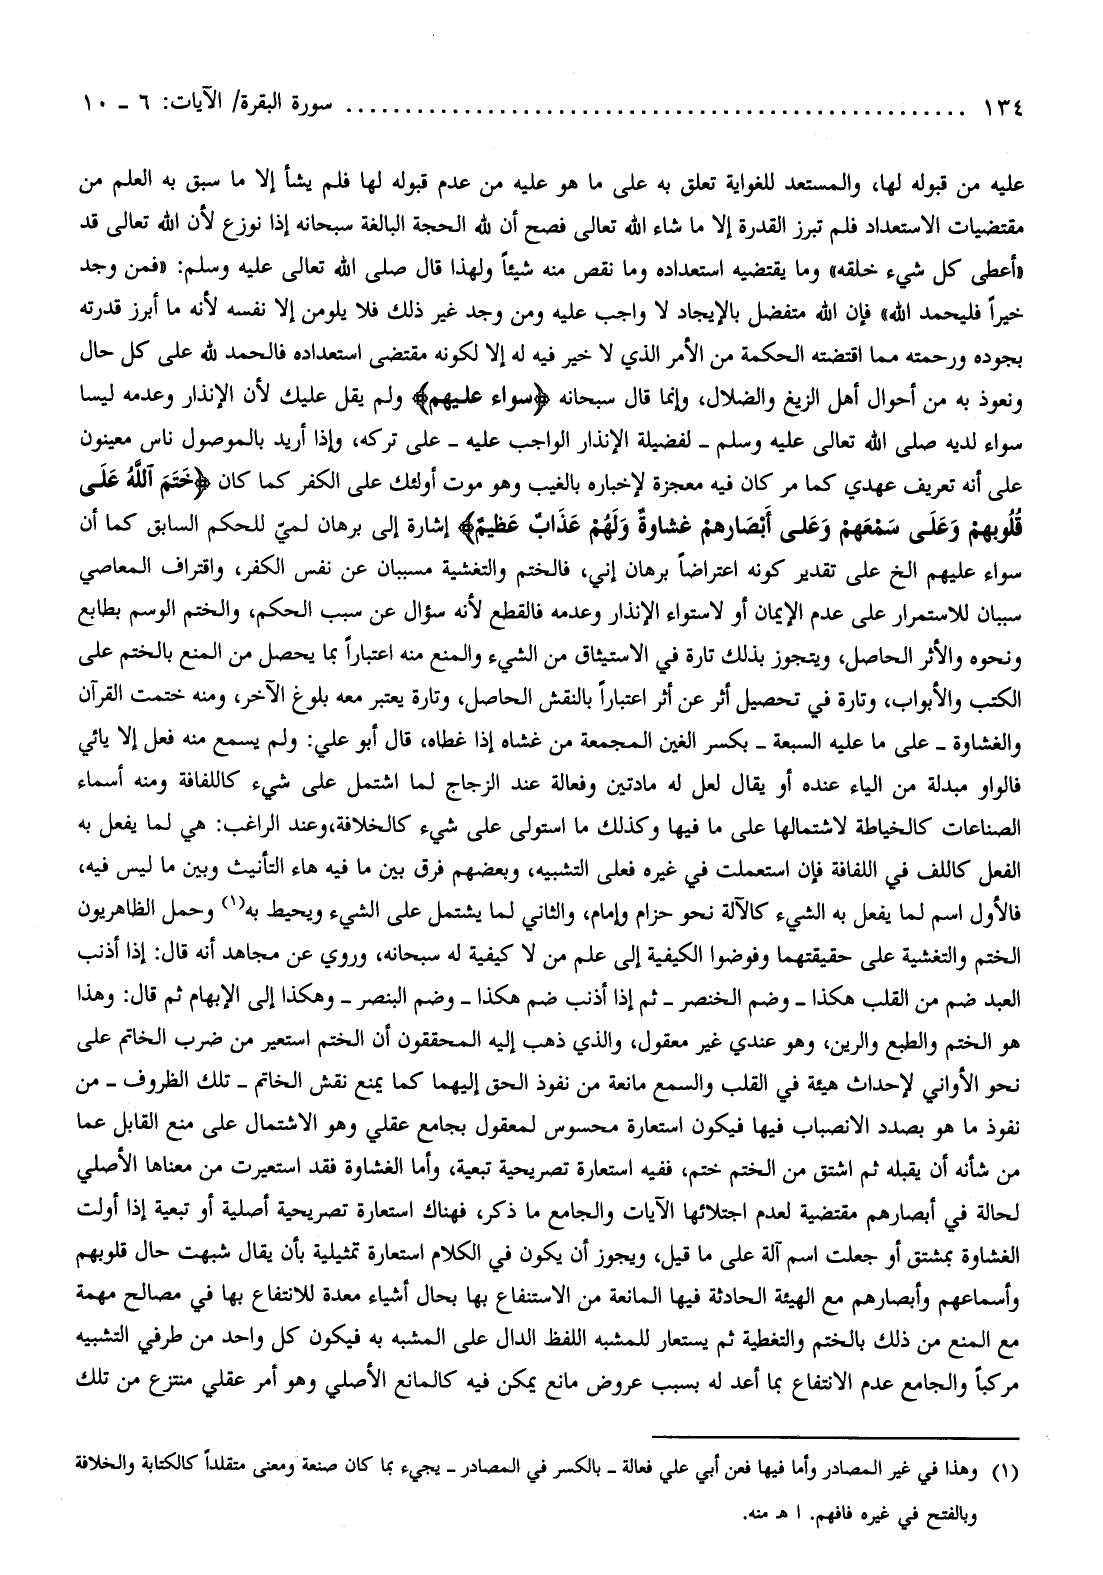 ١٣٤ ........................................................ سورة البقرة/ الآيات: ٦ ـ ١٠
عليه من قبوله لها، والمستعد للغواية تعلق به على ما هو عليه من عدم قبوله لها فلم يشأ إلا ما سبق به العلم من
مقتضيات الاستعداد فلم تبرز القدرة إلا ما شاء الله تعالى فصح أن لله الحجة البالغة سبحانه إذا نوزع لأن الله تعالى قد
«أعطى كل شيء خلقه» وما يقتضيه استعداده وما نقص منه شيئاً ولهذا قال صلى الله تعالى عليه وسلم: «فمن وجد
خيراً فليحمد الله» فإن الله متفضل بالإيجاد لا واجب عليه ومن وجد غير ذلك فلا يلومن إلا نفسه لأنه ما أبرز قدرته
بجوده ورحمته مما اقتضته الحكمة من الأمر الذي لا خير فيه له إلا لكونه مقتضى استعداده فالحمد لله على كل حال
ونعوذ به من أحوال أهل الزيغ والضلال، وإنما قال سبحانه ﴿سواء عليهم﴾ ولم يقل عليك لأن الإنذار وعدمه ليسا
سواء لديه صلى الله تعالى عليه وسلم ـ لفضيلة الإنذار الواجب عليه ـ على تركه، وإذا أريد بالموصول ناس معينون
على أنه تعريف عهدي كما مر كان فيه معجزة لإخباره بالغيب وهو موت أولئك على الكفر كما كان ﴿خَتَمَ ٱللَّهُ عَلَى
قُلُوبهِمْ وَعَلَى سَمْعَهِمْ وَعَلى أَبْصَارهِمْ غشاوةٌ وَلَهُمْ عَذَابٌ عَظِيمٌ﴾ إشارة إلى برهان لميّ للحكم السابق كما أن
سواء عليهم الخ على تقدير كونه اعتراضاً برهان إني، فالختم والتغشية مسببان عن نفس الكفر، واقتراف المعاصي
سببان للاستمرار على عدم الإيمان أو لاستواء الإنذار وعدمه فالقطع لأنه سؤال عن سبب الحكم، والختم الوسم بطابع
ونحوه والأثر الحاصل، ويتجوز بذلك تارة في الاستيثاق من الشيء والمنع منه اعتباراً بما يحصل من المنع بالختم على
الكتب والأبواب، وتارة في تحصيل أثر عن أثر اعتباراً بالنقش الحاصل، وتارة يعتبر معه بلوغ الآخر، ومنه ختمت القرآن
والغشاوة ـ على ما عليه السبعة ـ بكسر الغين المجمعة من غشاه إذا غطاه، قال أبو علي: ولم يسمع منه فعل إلا يائي
فالواو مبدلة من الياء عنده أو يقال لعل له مادتين وفعالة عند الزجاج لما اشتمل على شيء كاللفافة ومنه أسماء
الصناعات كالخياطة لاشتمالها على ما فيها وكذلك ما استولى على شيء كالخلافة،وعند الراغب: هي لما يفعل به
الفعل كاللف في اللفافة فإن استعملت في غيره فعلى التشبيه، وبعضهم فرق بين ما فيه هاء التأنيث وبين ما ليس فيه،
فالأول اسم لما يفعل به الشيء كالآلة نحو حزام وإمام، والثاني لما يشتمل على الشيء ويحيط به(١) وحمل الظاهريون
الختم والتغشية على حقيقتهما وفوضوا الكيفية إلى علم من لا كيفية له سبحانه، وروي عن مجاهد أنه قال: إذا أذنب
العبد ضم من القلب هكذا ـ وضم الخنصر ـ ثم إذا أذنب ضم هكذا ـ وضم البنصر ـ وهكذا إلى الإبهام ثم قال: وهذا
هو الختم والطبع والرين، وهو عندي غير معقول، والذي ذهب إليه المحققون أن الختم استعير من ضرب الخاتم على
نحو الأواني لإحداث هيئة في القلب والسمع مانعة من نفوذ الحق إليهما كما يمنع نقش الخاتم ـ تلك الظروف ـ من
نفوذ ما هو بصدد الانصباب فيها فيكون استعارة محسوس لمعقول بجامع عقلي وهو الاشتمال على منع القابل عما
من شأنه أن يقبله ثم اشتق من الختم ختم، ففيه استعارة تصريحية تبعية، وأما الغشاوة فقد استعيرت من معناها الأصلي
لحالة في أبصارهم مقتضية لعدم اجتلائها الآيات والجامع ما ذكر، فهناك استعارة تصريحية أصلية أو تبعية إذا أولت
الغشاوة بمشتق أو جعلت اسم آلة على ما قيل، ويجوز أن يكون في الكلام استعارة تمثيلية بأن يقال شبهت حال قلوبهم
وأسماعهم وأبصارهم مع الهيئة الحادثة فيها المانعة من الاستنفاع بها بحال أشياء معدة للانتفاع بها في مصالح مهمة
مع المنع من ذلك بالختم والتغطية ثم يستعار للمشبه اللفظ الدال على المشبه به فيكون كل واحد من طرفي التشبيه
مركباً والجامع عدم الانتفاع بما أعد له بسبب عروض مانع يمكن فيه كالمانع الأصلي وهو أمر عقلي منتزع من تلك
(١) وهذا في غير المصادر وأما فيها فعن أبي علي فعالة ـ بالكسر في المصادر ـ يجيء بما كان صنعة ومعنى متقلداً كالكتابة والخلافة
وبالفتح في غيره فافهم. ا هـ منه.